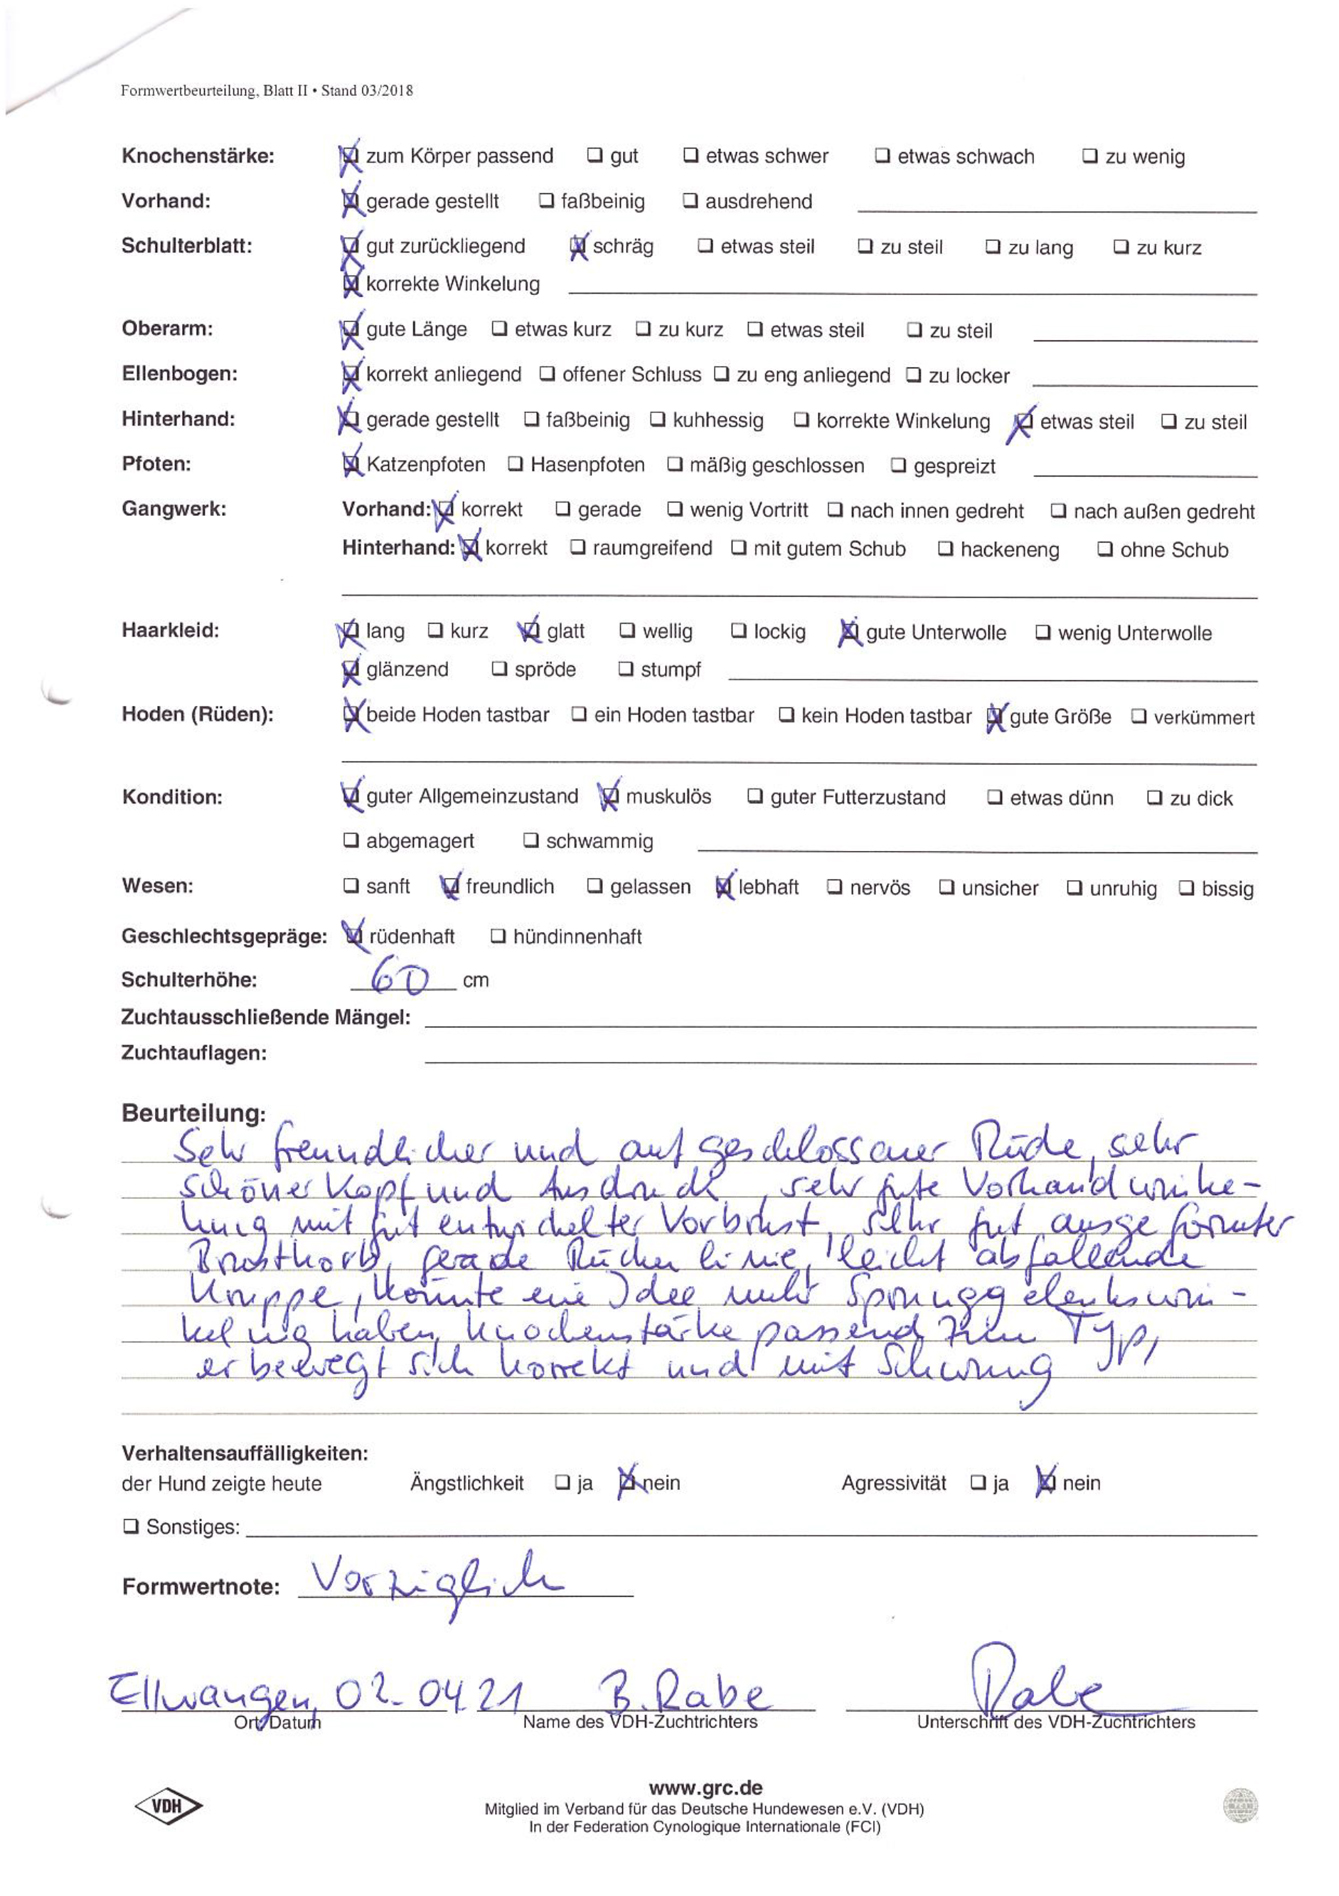 Formwertbeurteilung, Blatt II • Stand 03/2018
Knochenstärke: ☒ zum Körper passend ☐ gut ☐ etwas schwer ☐ etwas schwach ☐ zu wenig
Vorhand: ☒ gerade gestellt ☐ faßbeinig ☐ ausdrehend
Schulterblatt: ☒ gut zurückliegend ☒ schräg ☐ etwas steil ☐ zu steil ☐ zu lang ☐ zu kurz
☒ korrekte Winkelung
Oberarm: ☒ gute Länge ☐ etwas kurz ☐ zu kurz ☐ etwas steil ☐ zu steil
Ellenbogen: ☒ korrekt anliegend ☐ offener Schluss ☐ zu eng anliegend ☐ zu locker
Hinterhand: ☒ gerade gestellt ☐ faßbeinig ☐ kuhhessig ☐ korrekte Winkelung ☒ etwas steil ☐ zu steil
Pfoten: ☒ Katzenpfoten ☐ Hasenpfoten ☐ mäßig geschlossen ☐ gespreizt
Gangwerk: Vorhand: ☒ korrekt ☐ gerade ☐ wenig Vortritt ☐ nach innen gedreht ☐ nach außen gedreht
Hinterhand: ☒ korrekt ☐ raumgreifend ☐ mit gutem Schub ☐ hackeneng ☐ ohne Schub
Haarkleid: ☒ lang ☐ kurz ☒ glatt ☐ wellig ☐ lockig ☒ gute Unterwolle ☐ wenig Unterwolle
☒ glänzend ☐ spröde ☐ stumpf
Hoden (Rüden): ☒ beide Hoden tastbar ☐ ein Hoden tastbar ☐ kein Hoden tastbar ☒ gute Größe ☐ verkümmert
Kondition: ☒ guter Allgemeinzustand ☒ muskulös ☐ guter Futterzustand ☐ etwas dünn ☐ zu dick
☐ abgemagert ☐ schwammig
Wesen: ☐ sanft ☒ freundlich ☐ gelassen ☒ lebhaft ☐ nervös ☐ unsicher ☐ unruhig ☐ bissig
Geschlechtsgepräge: ☒ rüdenhaft ☐ hündinnenhaft
Schulterhöhe: 60 cm
Zuchtausschließende Mängel:
Zuchtauflagen:
Beurteilung:
Sehr freundlicher und aufgeschlossener Rüde, sehr
schöner Kopf und Ausdruck, sehr gute Vorhandwinke-
lung mit gut entwickelter Vorbrust, sehr gut ausgeformter
Brustkorb, gerade Rückenlinie, leicht abfallende
Kruppe, könnte eine Idee mehr Sprunggelenkswin-
kelung haben, Knochenstärke passend zum Typ,
er bewegt sich korrekt und mit Schwung
Verhaltensauffälligkeiten:
der Hund zeigte heute Ängstlichkeit ☐ ja ☒ nein Agressivität ☐ ja ☒ nein
☐ Sonstiges:
Formwertnote: Vorzüglich
Ellwangen, 02.04.21 B. Rabe Rabe
Ort/Datum Name des VDH-Zuchtrichters Unterschrift des VDH-Zuchtrichters
www.grc.de
VDH Mitglied im Verband für das Deutsche Hundewesen e.V. (VDH)
In der Federation Cynologique Internationale (FCI)